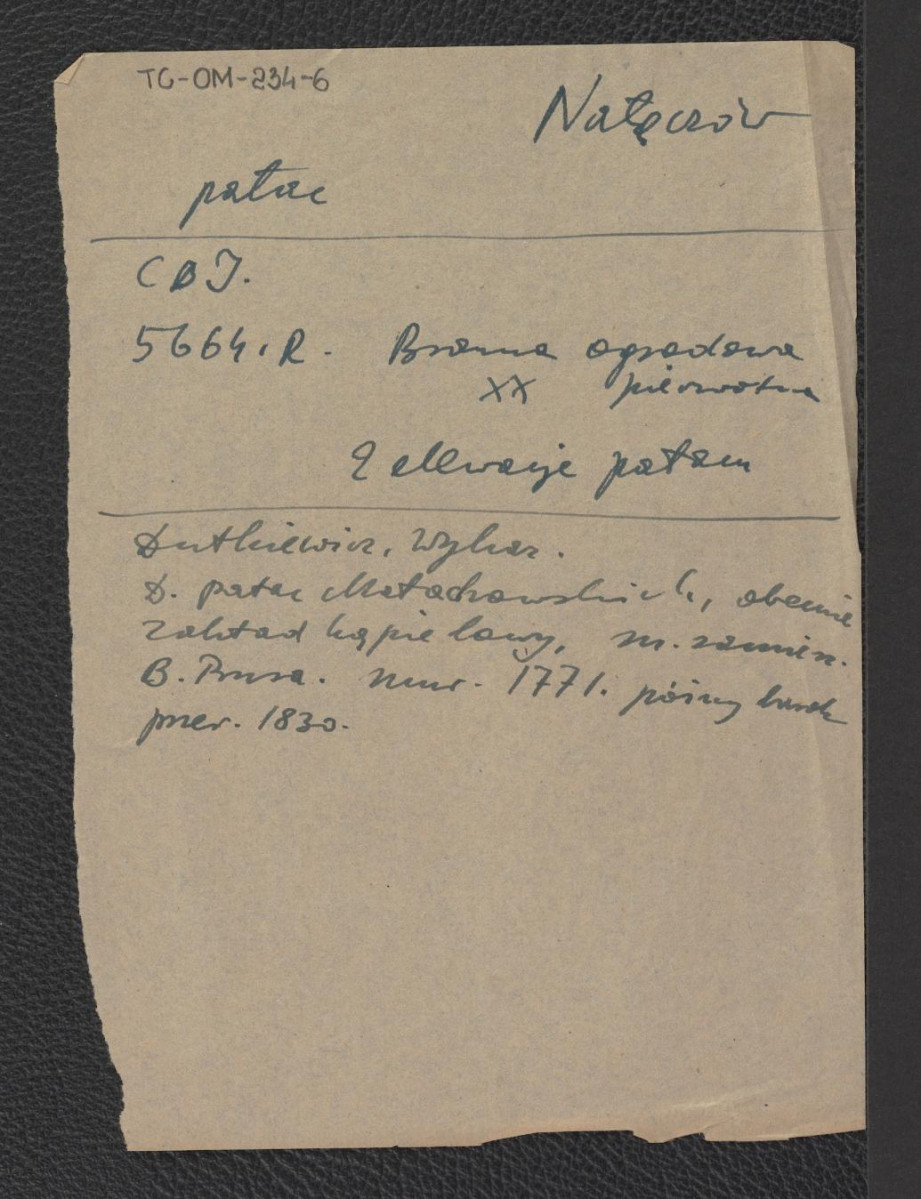 TG-OM-234-6
Nałęczów
pałac
C B J.
5664.R. Brama ogrodowa
XX pierwotna
2 elewacje pałacu
Dutkiewicz, Wykaz.
D. pałac Małachowskich, obecnie
zakład kąpielowy, m. zamiesz.
B. Prusa. mur. 1771. późny barok
przer. 1830.